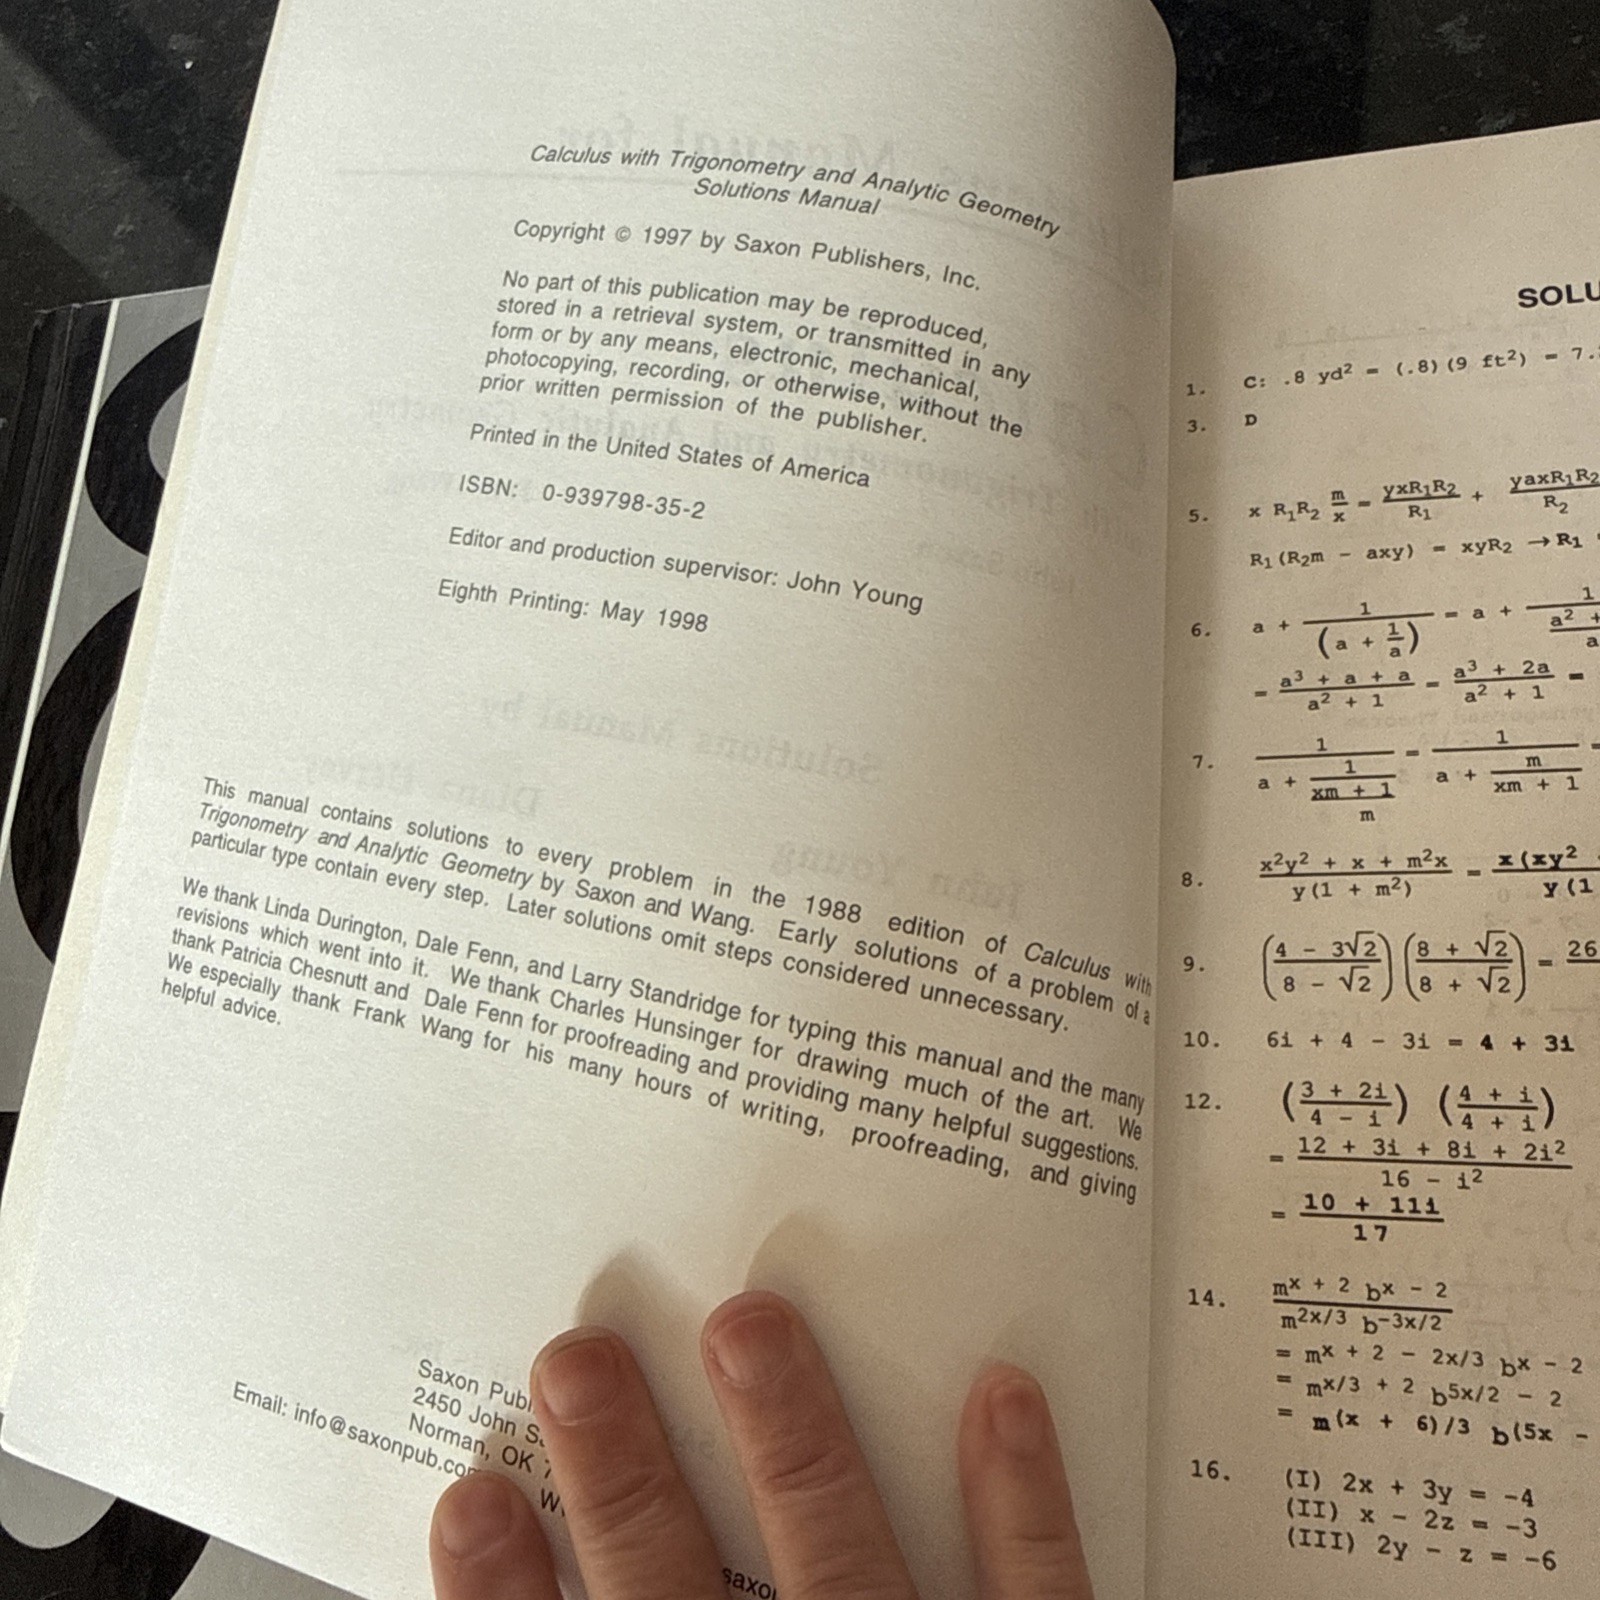 Calculus with Trigonometry and Analytic Geometry
Solutions Manual
Copyright © 1997 by Saxon Publishers, Inc.
No part of this publication may be reproduced,
stored in a retrieval system, or transmitted in any
form or by any means, electronic, mechanical,
photocopying, recording, or otherwise, without the
prior written permission of the publisher.
Printed in the United States of America
ISBN: 0-939798-35-2
Editor and production supervisor: John Young
Eighth Printing: May 1998
This manual contains solutions to every problem in the 1988 edition of Calculus with
Trigonometry and Analytic Geometry by Saxon and Wang. Early solutions of a problem of a
particular type contain every step. Later solutions omit steps considered unnecessary.
We thank Linda Durington, Dale Fenn, and Larry Standridge for typing this manual and the many
revisions which went into it. We thank Charles Hunsinger for drawing much of the art. We
thank Patricia Chesnutt and Dale Fenn for proofreading and providing many helpful suggestions.
We especially thank Frank Wang for his many hours of writing, proofreading, and giving
helpful advice.
Saxon Publ
2450 John S
Norman, OK 7
Email: info@saxonpub.com
W
saxo
SOLU
1. C: .8 yd² = (.8)(9 ft²) = 7.
3. D
5. x R₁R₂ m/x = yxR₁R₂/R₁ + yaxR₁R₂/R₂
R₁(R₂m - axy) = xyR₂ → R₁
6. a + 1/(a + 1/a) = a + 1/(a² + /a
= (a³ + a + a)/(a² + 1) = (a³ + 2a)/(a² + 1) =
7. 1/(a + 1/((xm + 1)/m)) = 1/(a + m/(xm + 1)) =
8. (x²y² + x + m²x)/(y(1 + m²)) = x(xy² /y(1
9. ((4 - 3√2)/(8 - √2)) ((8 + √2)/(8 + √2)) = 26
10. 6i + 4 - 3i = 4 + 3i
12. ((3 + 2i)/(4 - i)) ((4 + i)/(4 + i))
= (12 + 3i + 8i + 2i²)/(16 - i²)
= (10 + 11i)/17
14. (m^(x + 2) b^(x - 2))/(m^(2x/3) b^(-3x/2))
= m^(x + 2 - 2x/3) b^(x - 2
= m^(x/3 + 2) b^(5x/2 - 2)
= m^((x + 6)/3) b^((5x -
16. (I) 2x + 3y = -4
(II) x - 2z = -3
(III) 2y - z = -6